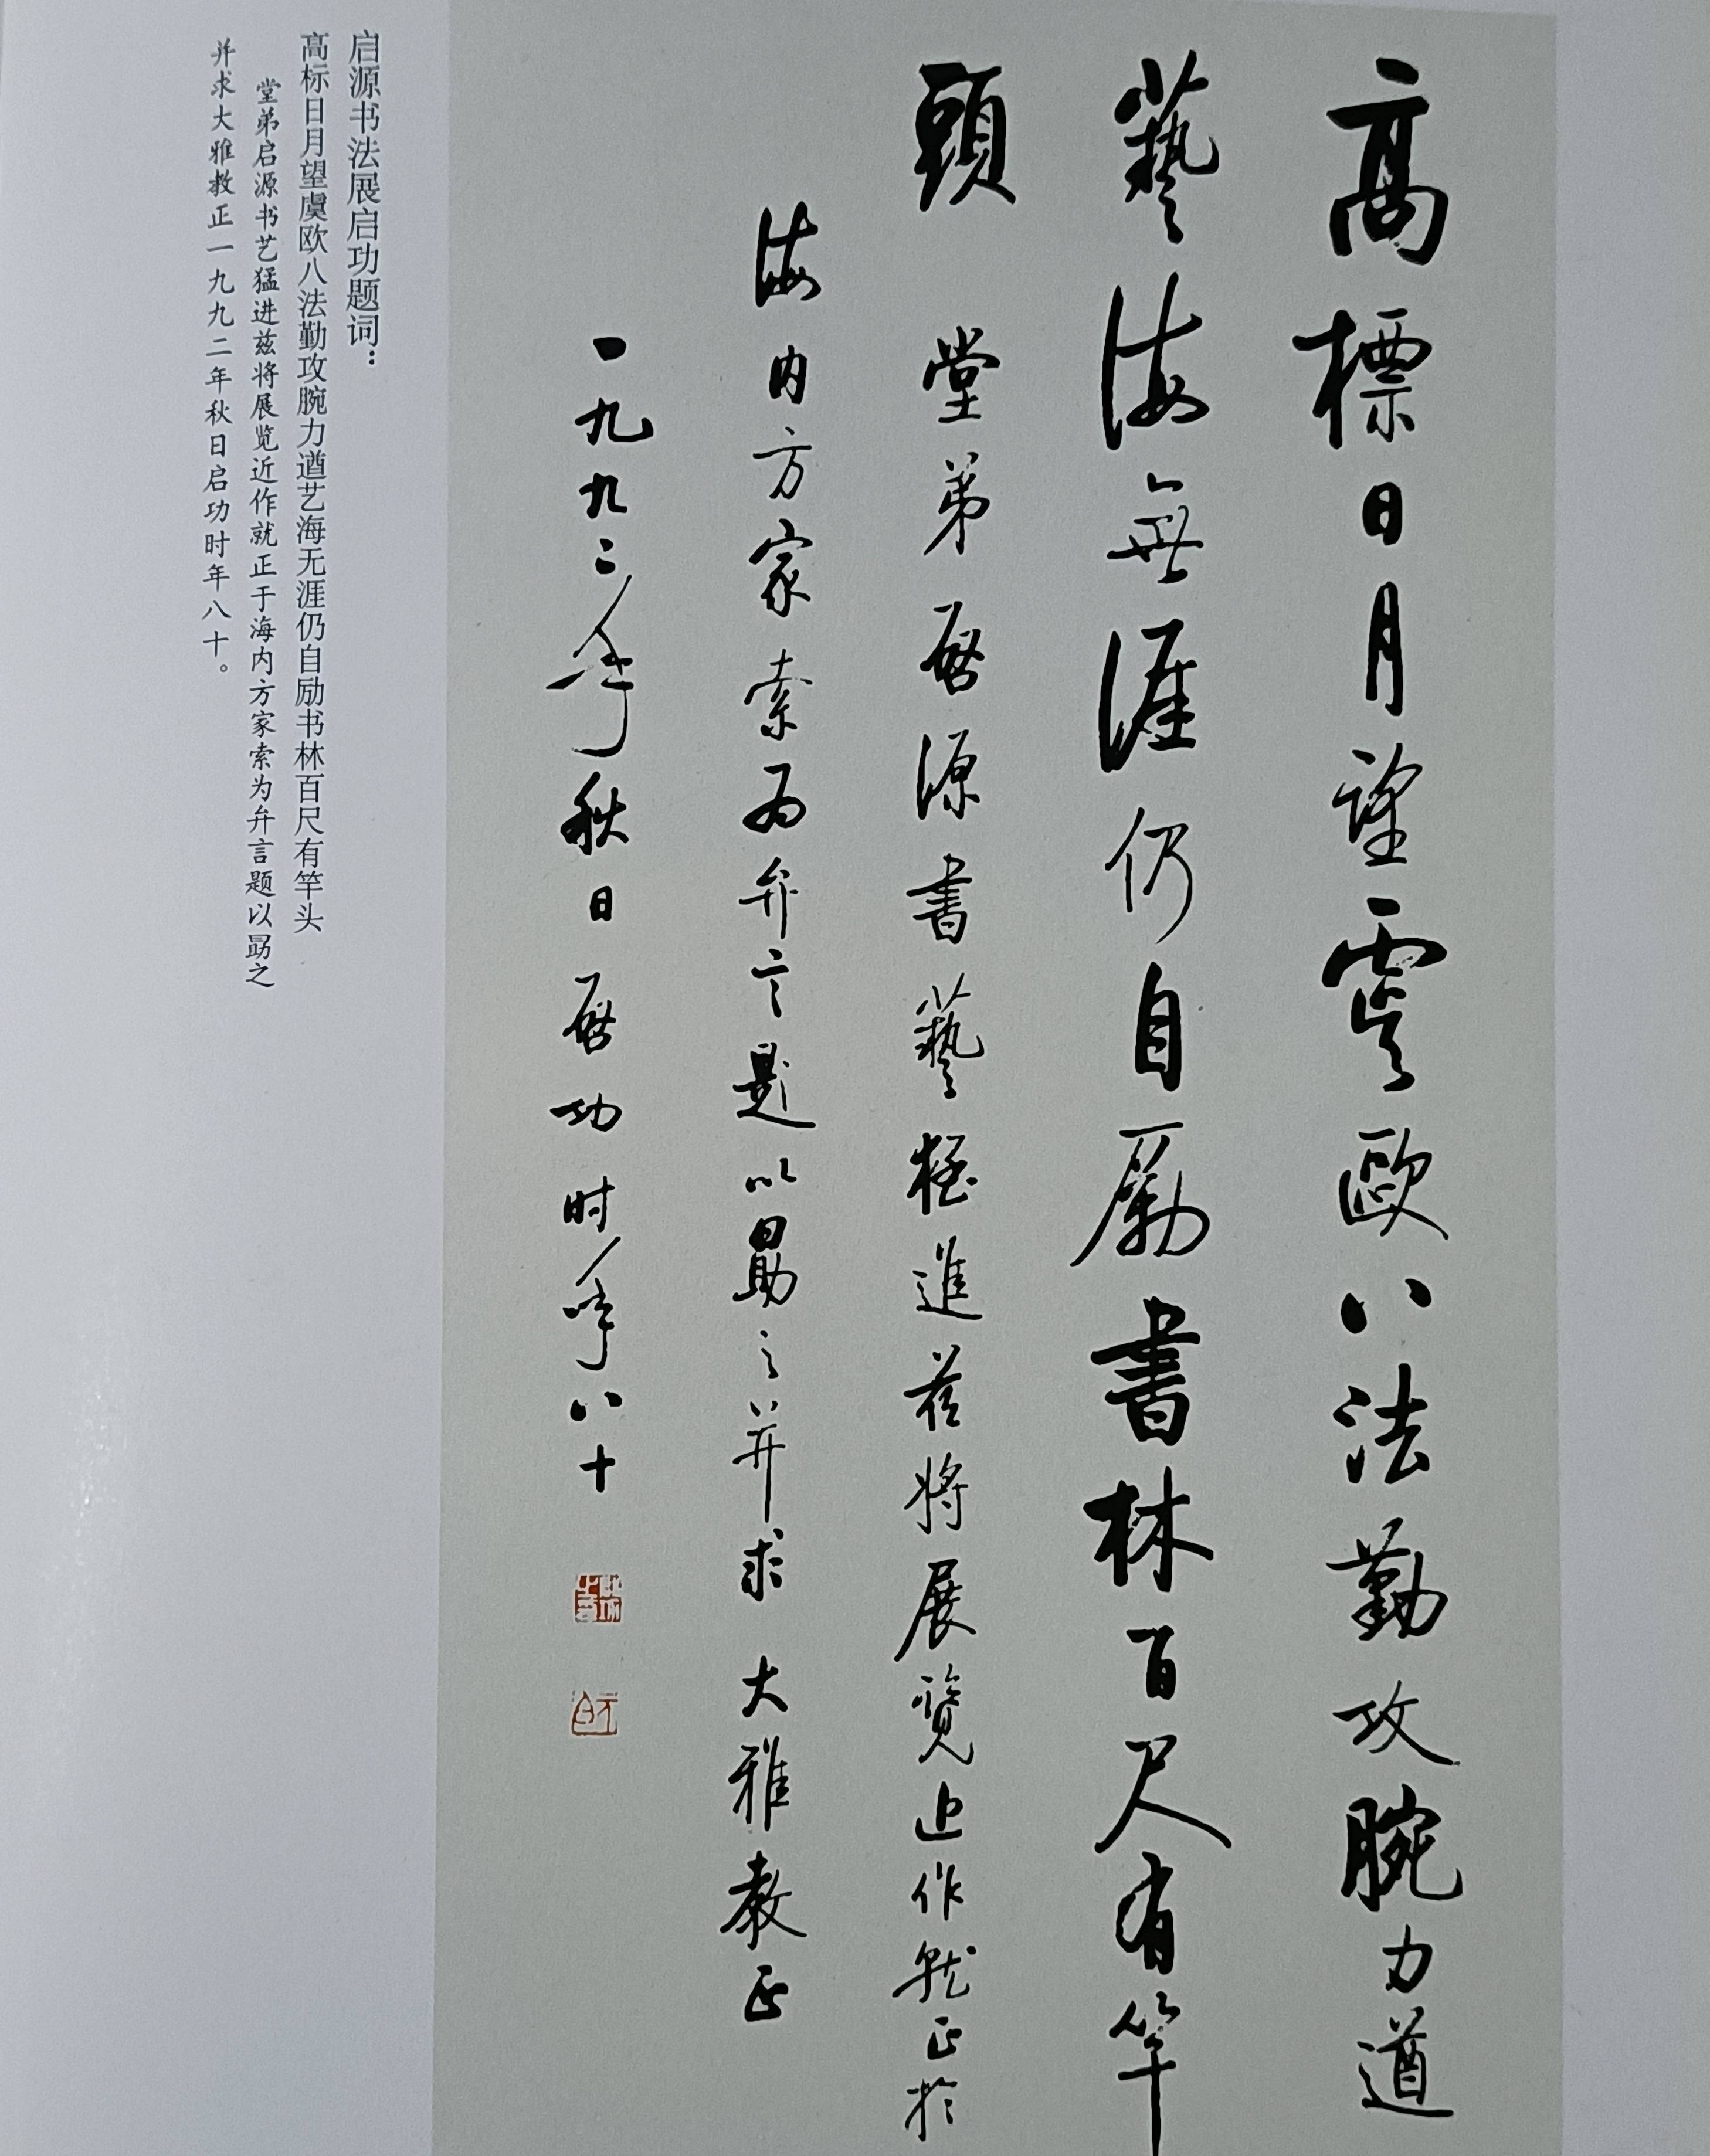 高標日月望虞歐八法勤攻腕力遒
藝海無涯仍自勵書林百尺有竿
頭 堂弟啓源書藝猛進茲將展覽近作就正於
海内方家索为弁言題以勗之并求 大雅教正
一九九二年秋日啓功时年八十
元白
启源书法展启功题词：
高标日月望虞欧八法勤攻腕力遒艺海无涯仍自励书林百尺有竿头
堂弟启源书艺猛进兹将展览近作就正于海内方家索为弁言题以勗之
并求大雅教正一九九二年秋日启功时年八十。